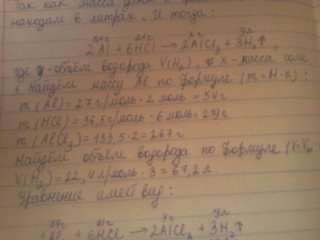 Так как масса
находим в литрах. И тогда:
54г 219г xг yл
2Al + 6HCl → 2AlCl₃ + 3H₂↑
где y - объём водорода V(H₂), а X - масса соли
Найдём массу Al по формуле (m = M·n):
m(Al) = 27 г/моль · 2 моль = 54г
m(HCl) = 36,5 г/моль · 6 моль = 219г
m(AlCl₃) = 133,5 · 2 = 267г
Найдём объём водорода по формуле
V(H₂) = 22,4 л/моль · 3 = 67,2 л
Уравнение имеет вид:
+ 6HCl → 2AlCl₃ + 3H₂↑